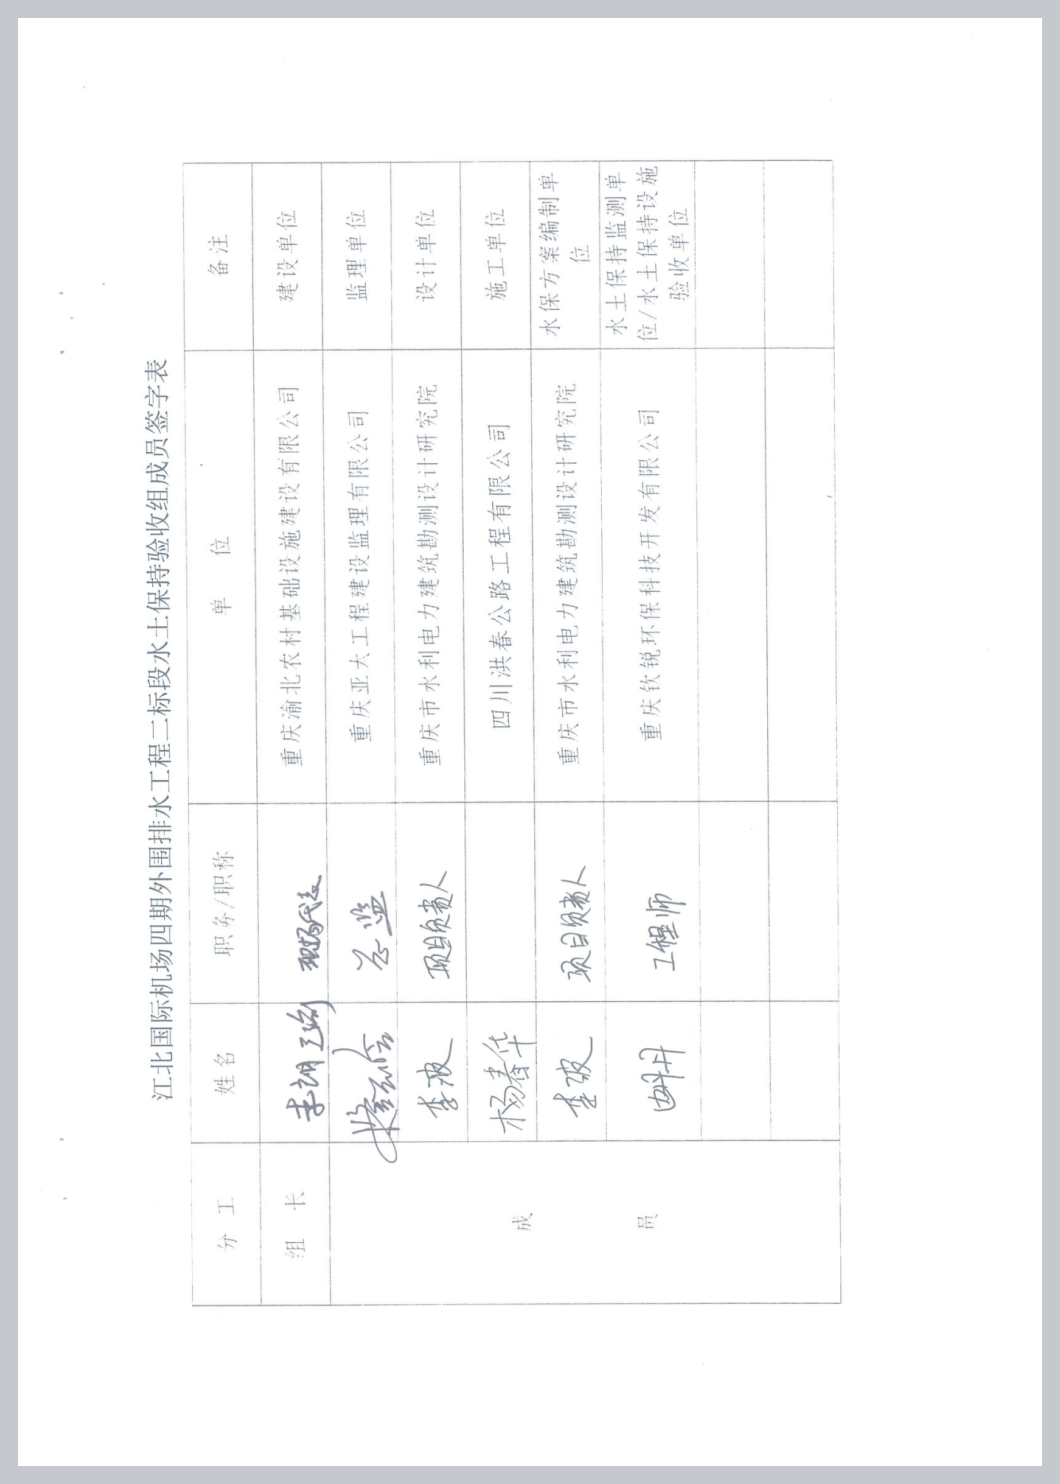 江北国际机场四期外围排水工程二标段水土保持验收组成员签字表
分 工 姓名 职务/职称 单 位 备注
组 长 现场代表 重庆渝北农村基础设施建设有限公司 建设单位
成 员
总监 重庆亚太工程建设监理有限公司 监理单位
李波 项目负责人 重庆市水利电力建筑勘测设计研究院 设计单位
杨春华 四川洪春公路工程有限公司 施工单位
李波 项目负责人 重庆市水利电力建筑勘测设计研究院 水保方案编制单
位
工程师 重庆钦锐环保科技开发有限公司 水土保持监测单
位/水土保持设施
验收单位